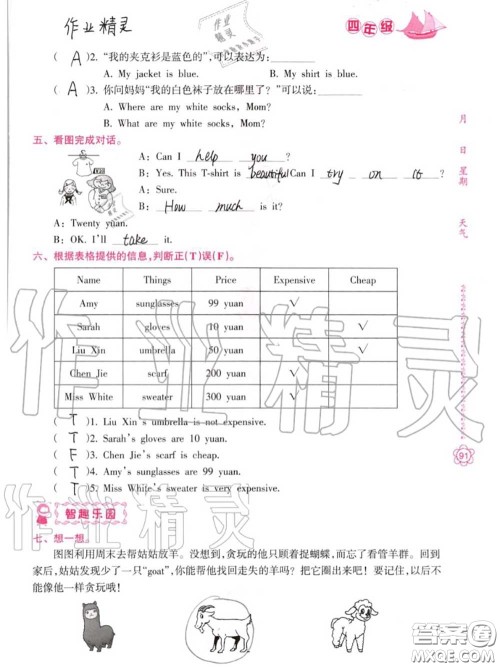 作业精灵
作业精灵
四年级
( A )2. "我的夹克衫是蓝色的",可以表达为:
A. My jacket is blue. B. My shirt is blue.
( A )3. 你问妈妈"我的白色袜子放在哪里了?"可以说:
A. Where are my white socks, Mom?
B. What are my white socks, Mom?
五、看图完成对话。
A: Can I help you?
B: Yes. This T-shirt is beautiful Can I try on it?
A: Sure.
B: How much is it?
A: Twenty yuan.
B: OK. I'll take it.
月 日 星期 天气
六、根据表格提供的信息,判断正(T)误(F)。
Name Things Price Expensive Cheap
Amy sunglasses 99 yuan √
Sarah gloves 10 yuan √
Liu Xin umbrella 50 yuan √
Chen Jie scarf 200 yuan √
Miss White sweater 300 yuan √
( T )1. Liu Xin's umbrella is not expensive.
( T )2. Sarah's gloves are 10 yuan.
( F )3. Chen Jie's scarf is cheap.
( T )4. Amy's sunglasses are 99 yuan.
( T )5. Miss White's sweater is very expensive.
91
作业精灵
作业精灵
智趣乐园
七、想一想。
图图利用周末去帮姑姑放羊。没想到,贪玩的他只顾着捉蝴蝶,而忘了看管羊群。回到
家后,姑姑发现少了一只"goat",你能帮他找回走失的羊吗?把它圈出来吧!要记住,以后不
能像他一样贪玩哦!
答案圈
MXQE.COM